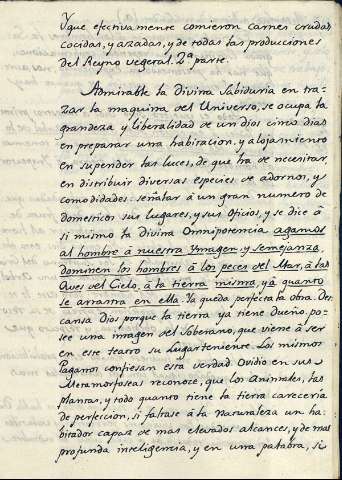 Y que efectivamente comieron carnes crudas,
cocidas, y azadas, y de todas las producciones
del Reyno vegetal. 2ª parte.
Admirable la divina Sabiduria en tra-
zar la maquina del Universo, se ocupa la
grandeza y liberalidad de un dios cinco dias
en preparar una habitacion, y alojamiento
en suspender las luces, de que ha de necesitar,
en distribuir diversas especies de adornos, y
comodidades: señalar à un gran numero de
domesticos sus lugares, y sus oficios, y se dice à
si mismo la divina Omnipotencia agamos
al hombre à nuestra Ymagen y Semejanza,
dominen los hombres à los peces del Mar, à las
Aves del Cielo, à la tierra misma, y à quanto
se arrastra en ella. Ya queda perfecta la obra. Des-
cansa Dios porque la tierra ya tiene dueño, po-
see una imagen del Soberano, que viene à ser
en este teatro su Lugarteniente. Los mismos
Paganos confiesan esta verdad. Ovidio en sus
Metamorfoseas reconoce, que los animales, las
plantas, y todo quanto tiene la tierra careceria
de perfeccion, si faltase à la naturaleza un ha-
bitador capaz de mas elevados alcances, y de mas
profunda inteligencia, y en una palabra, si